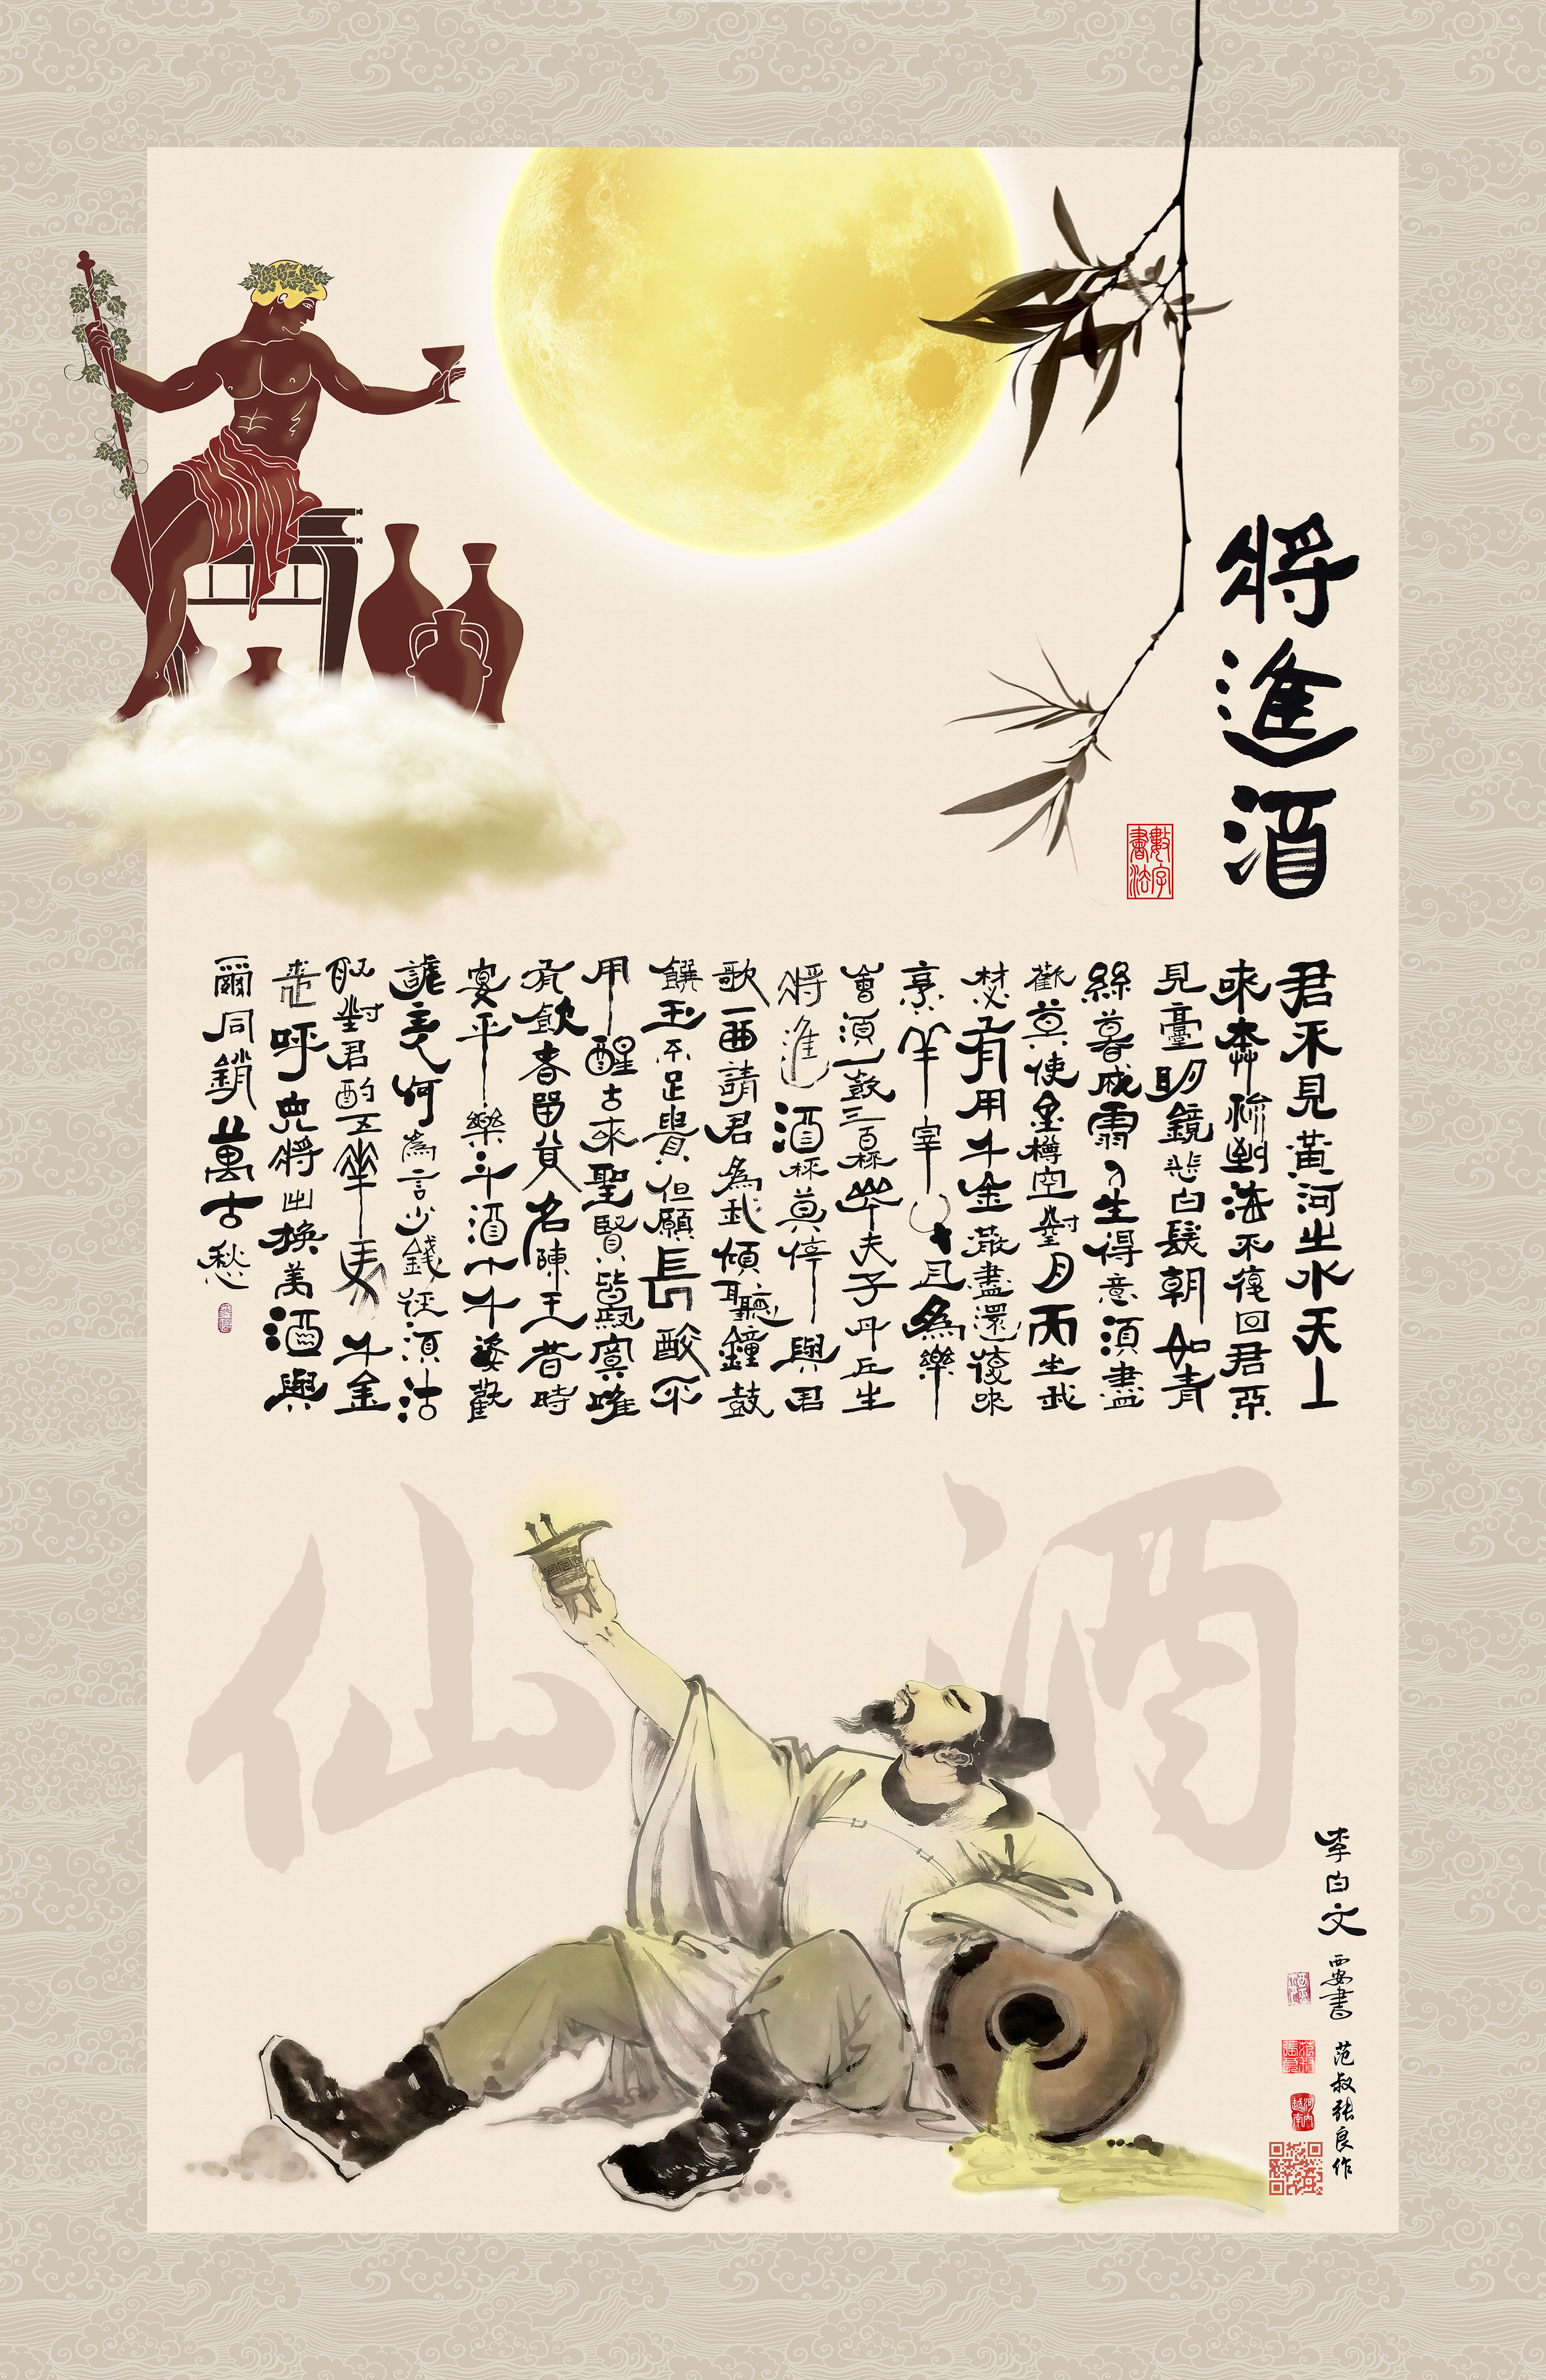 將進酒
數字書法
君不見黃河之水天上
來奔流到海不復回君不
見臺明鏡悲白髮朝如青
絲暮成雪人生得意須盡
歡莫使金樽空對月天生我
材必有用千金散盡還復來
烹羊宰牛且為樂
會須一飲三百杯岑夫子丹丘生
將進酒杯莫停與君
歌一曲請君為我傾耳聽鐘鼓
饌玉不足貴但願長醉不
用醒古來聖賢皆寂寞唯
有飲者留其名陳王昔時
宴平樂斗酒十千恣歡
謔主人何為言少錢徑須沽
取對君酌五花馬千金
裘呼兒將出換美酒與
爾同銷萬古愁
酒仙
李白文
西安書
范叔張良作
河內越南